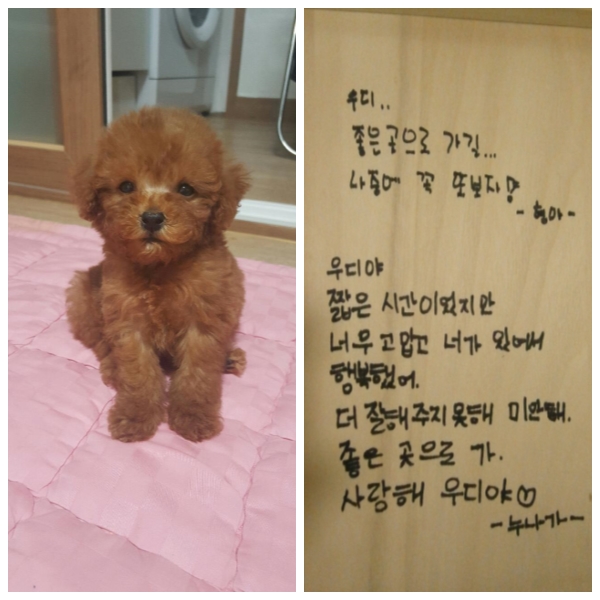 우디..
좋은곳으로 가길...
나중에 꼭 또보자!
- 형아 -
우디야
짧은 시간이었지만
너무 고맙고 너가 있어서
행복했어.
더 잘해주지못해 미안해.
좋은 곳으로 가.
사랑해 우디야♡
- 누나가 -